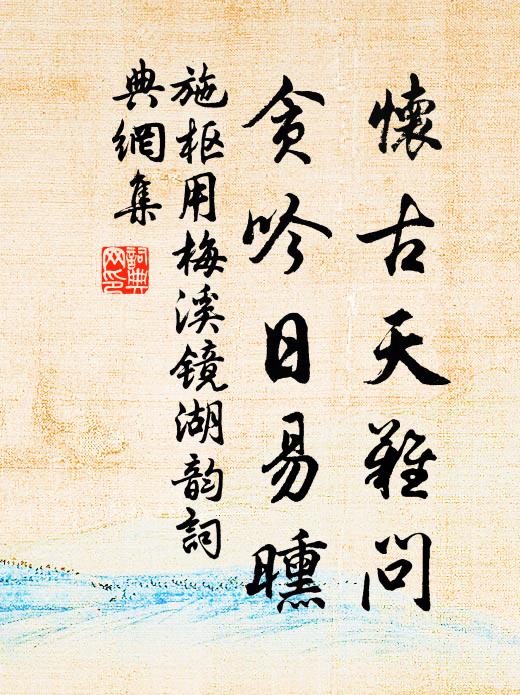 懷古天難问
貪吟日易曛
施枢用梅溪镜湖韵詞
典網集
詞典
网印